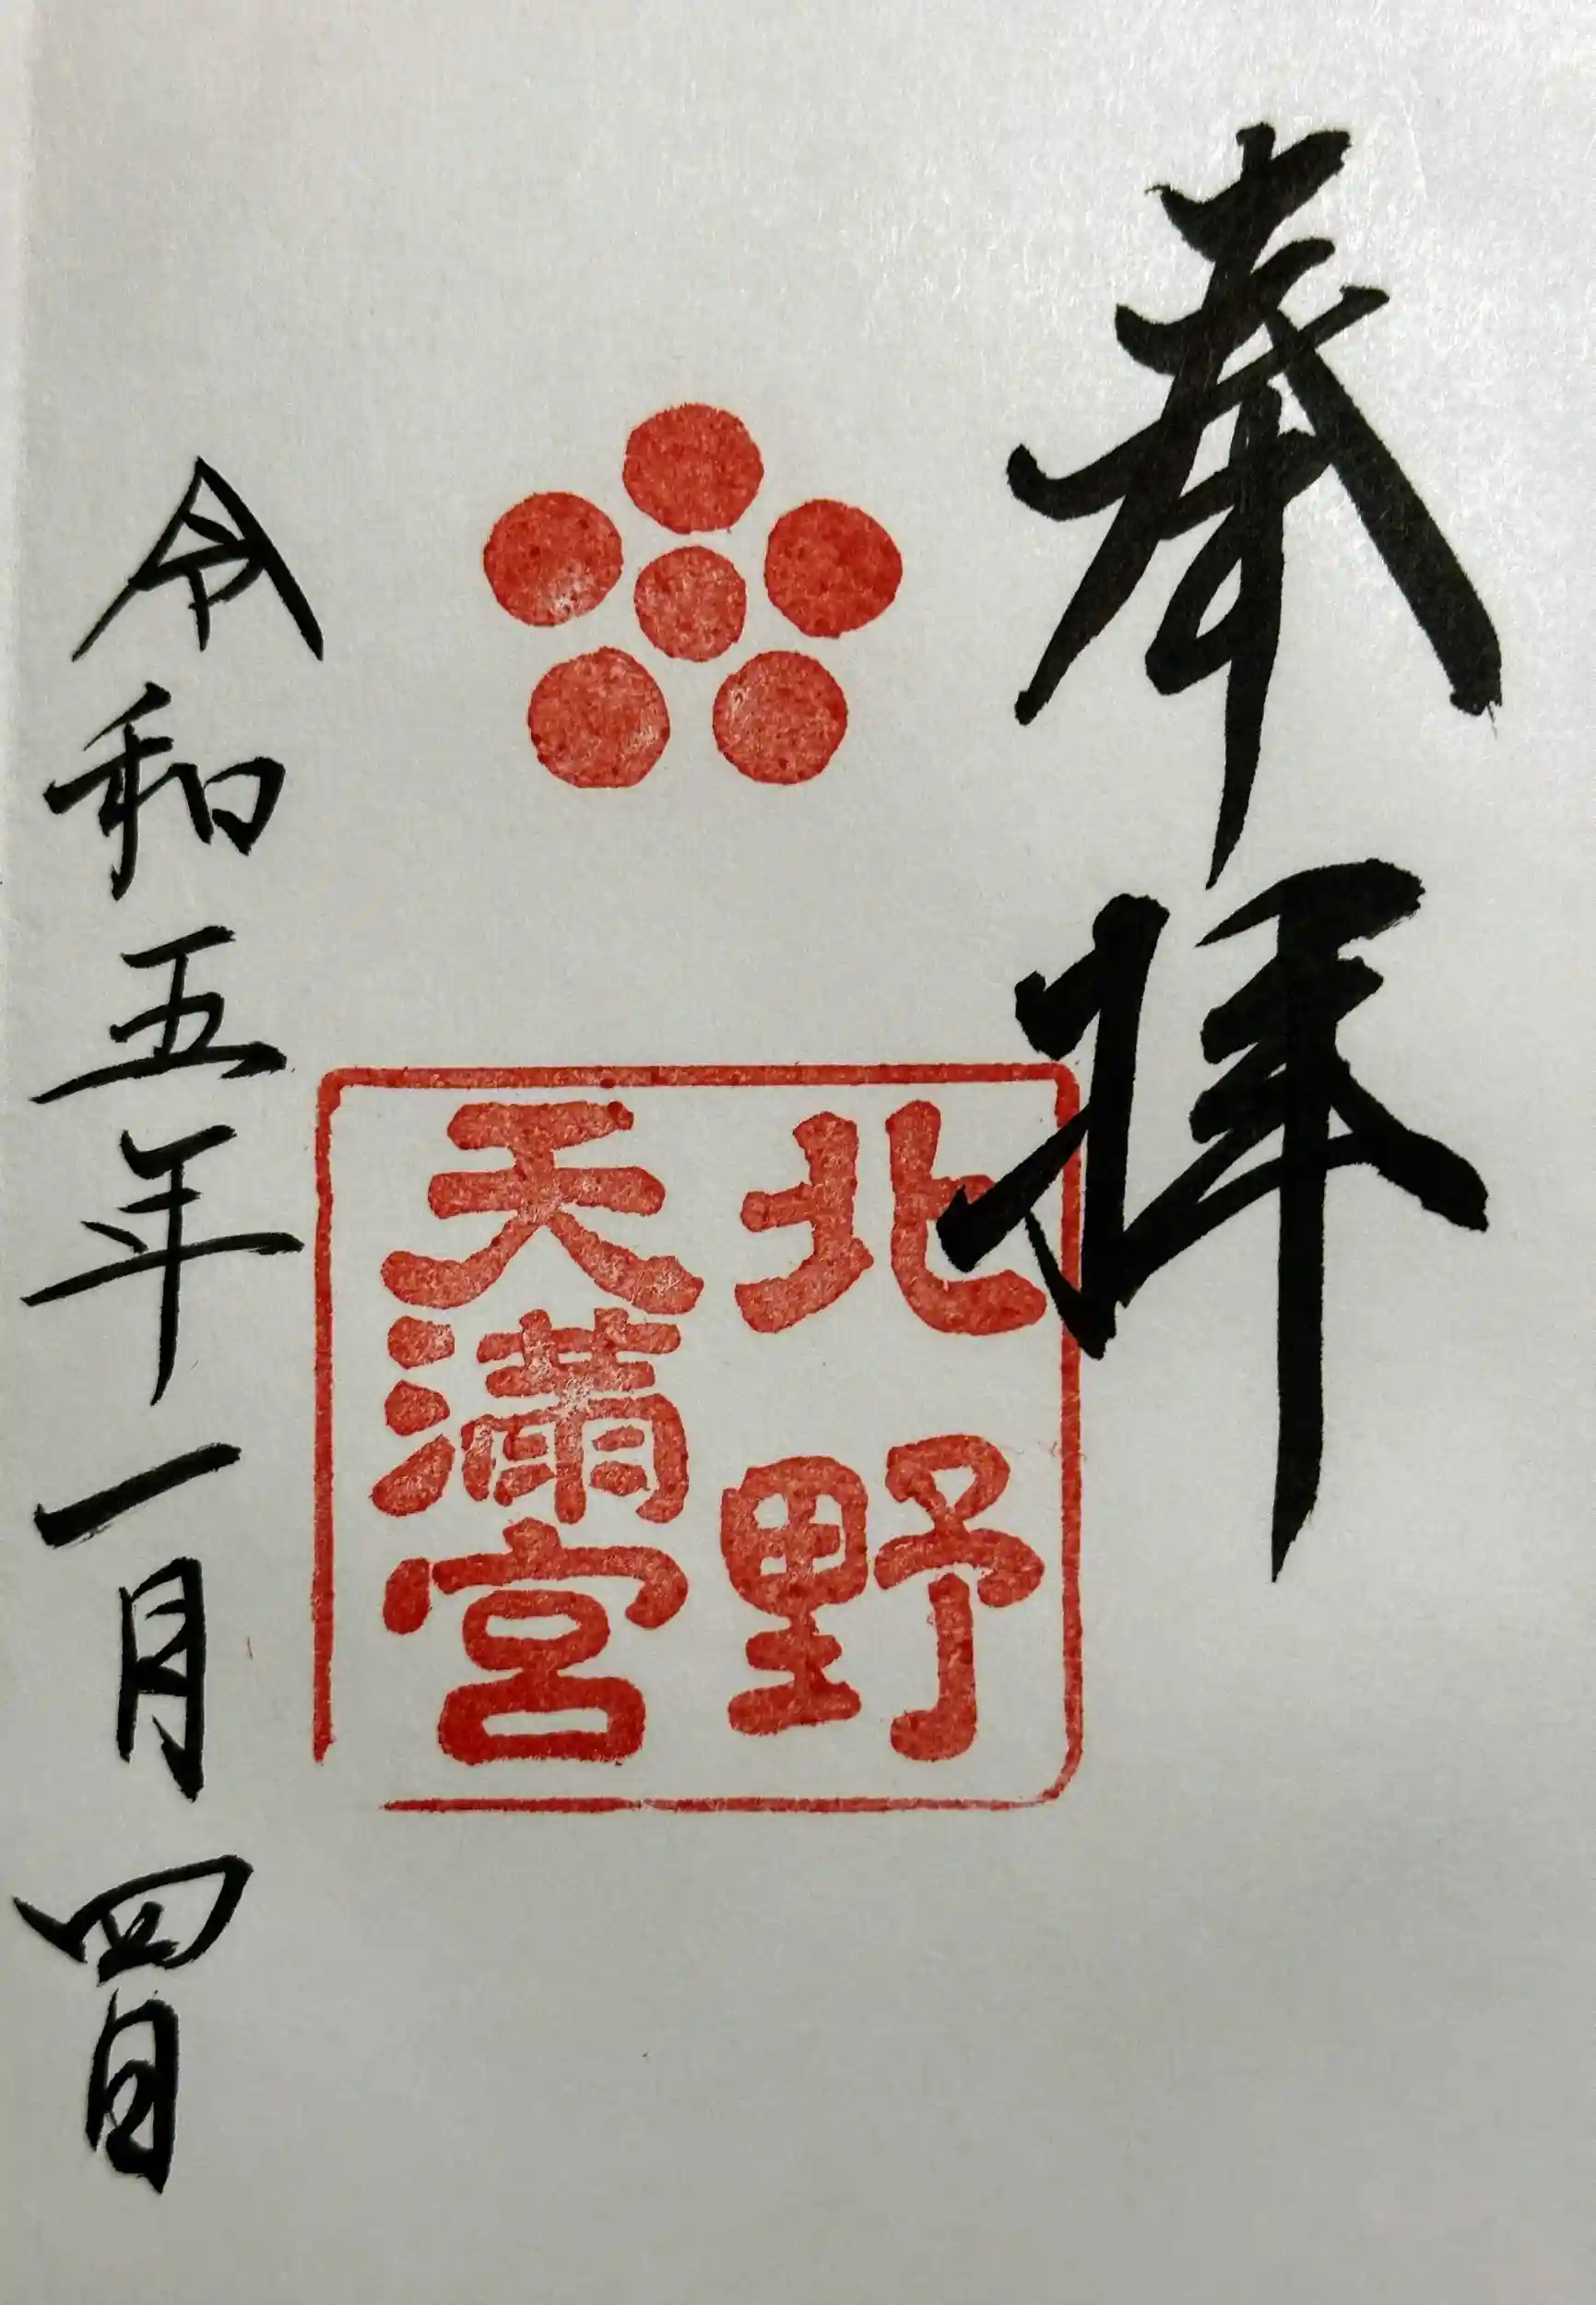 奉拝
北野
天満宮
令和五年一月四日